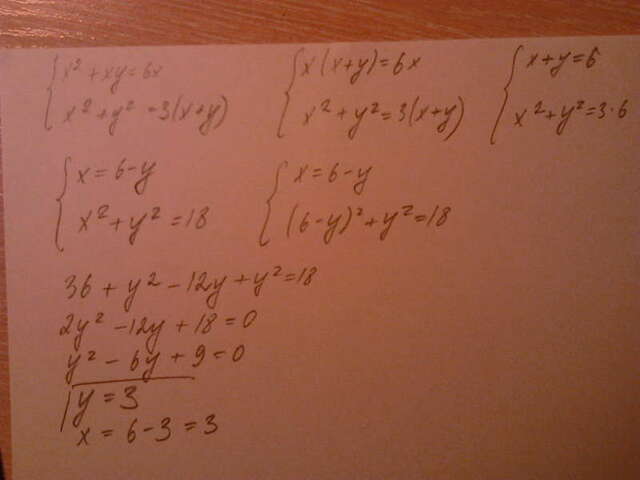 x² + xy = 6x
x² + y² = 3(x+y)
x(x+y) = 6x
x² + y² = 3(x+y)
x+y = 6
x² + y² = 3·6
x = 6-y
x² + y² = 18
x = 6-y
(6-y)² + y² = 18
36 + y² - 12y + y² = 18
2y² - 12y + 18 = 0
y² - 6y + 9 = 0
y = 3
x = 6-3 = 3